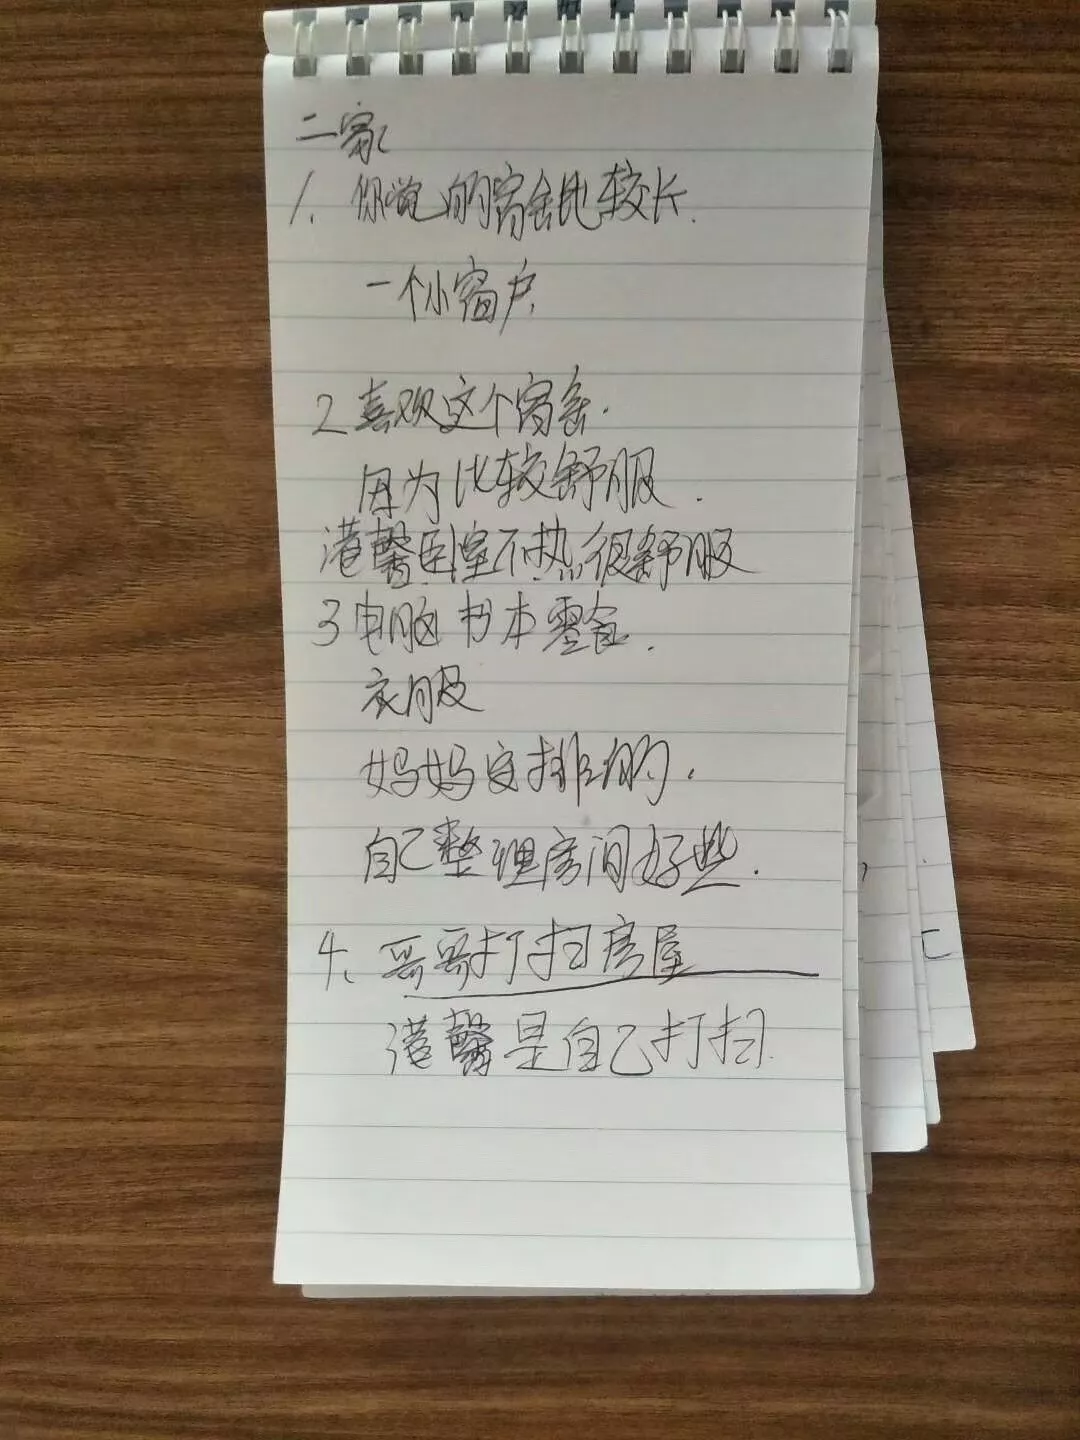 二家
1. 你说的宿舍比较长.
一个小窗户
2 喜欢这个宿舍.
因为比较舒服.
港馨卧室不热很舒服
3 电脑 书本 零食.
衣服
妈妈安排的.
自己整理房间好些.
4、哥哥打扫房屋
港馨是自己打扫.